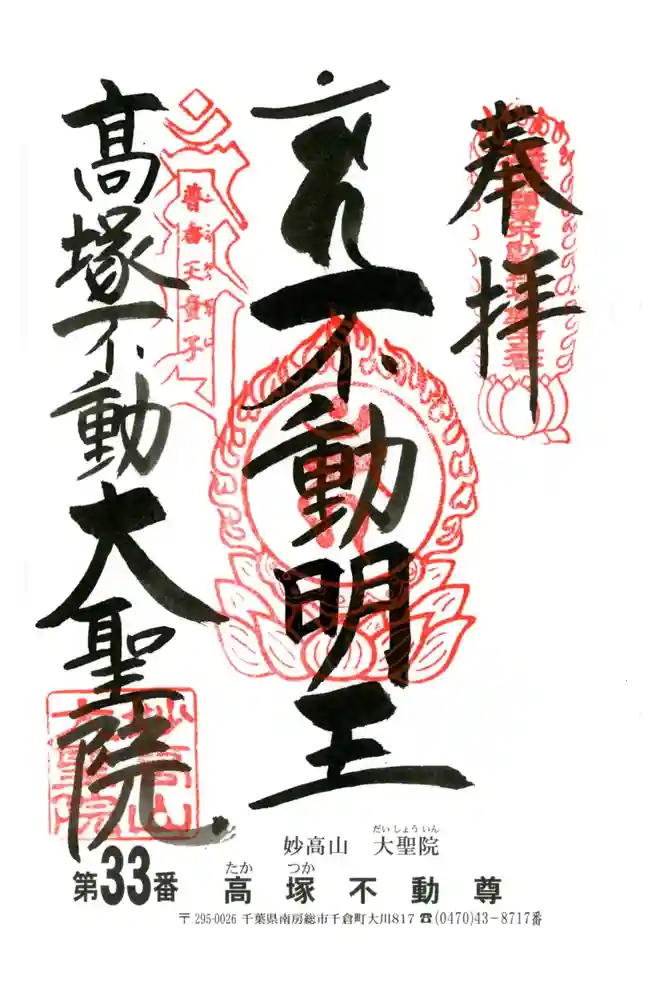 奉拝
不動明王
高塚不動大聖院
普香王童子
妙高山 大聖院
だいしょういん
第33番 高塚不動尊
たか つか
〒295-0026 千葉県南房総市千倉町大川817 ☎(0470)43-8717番